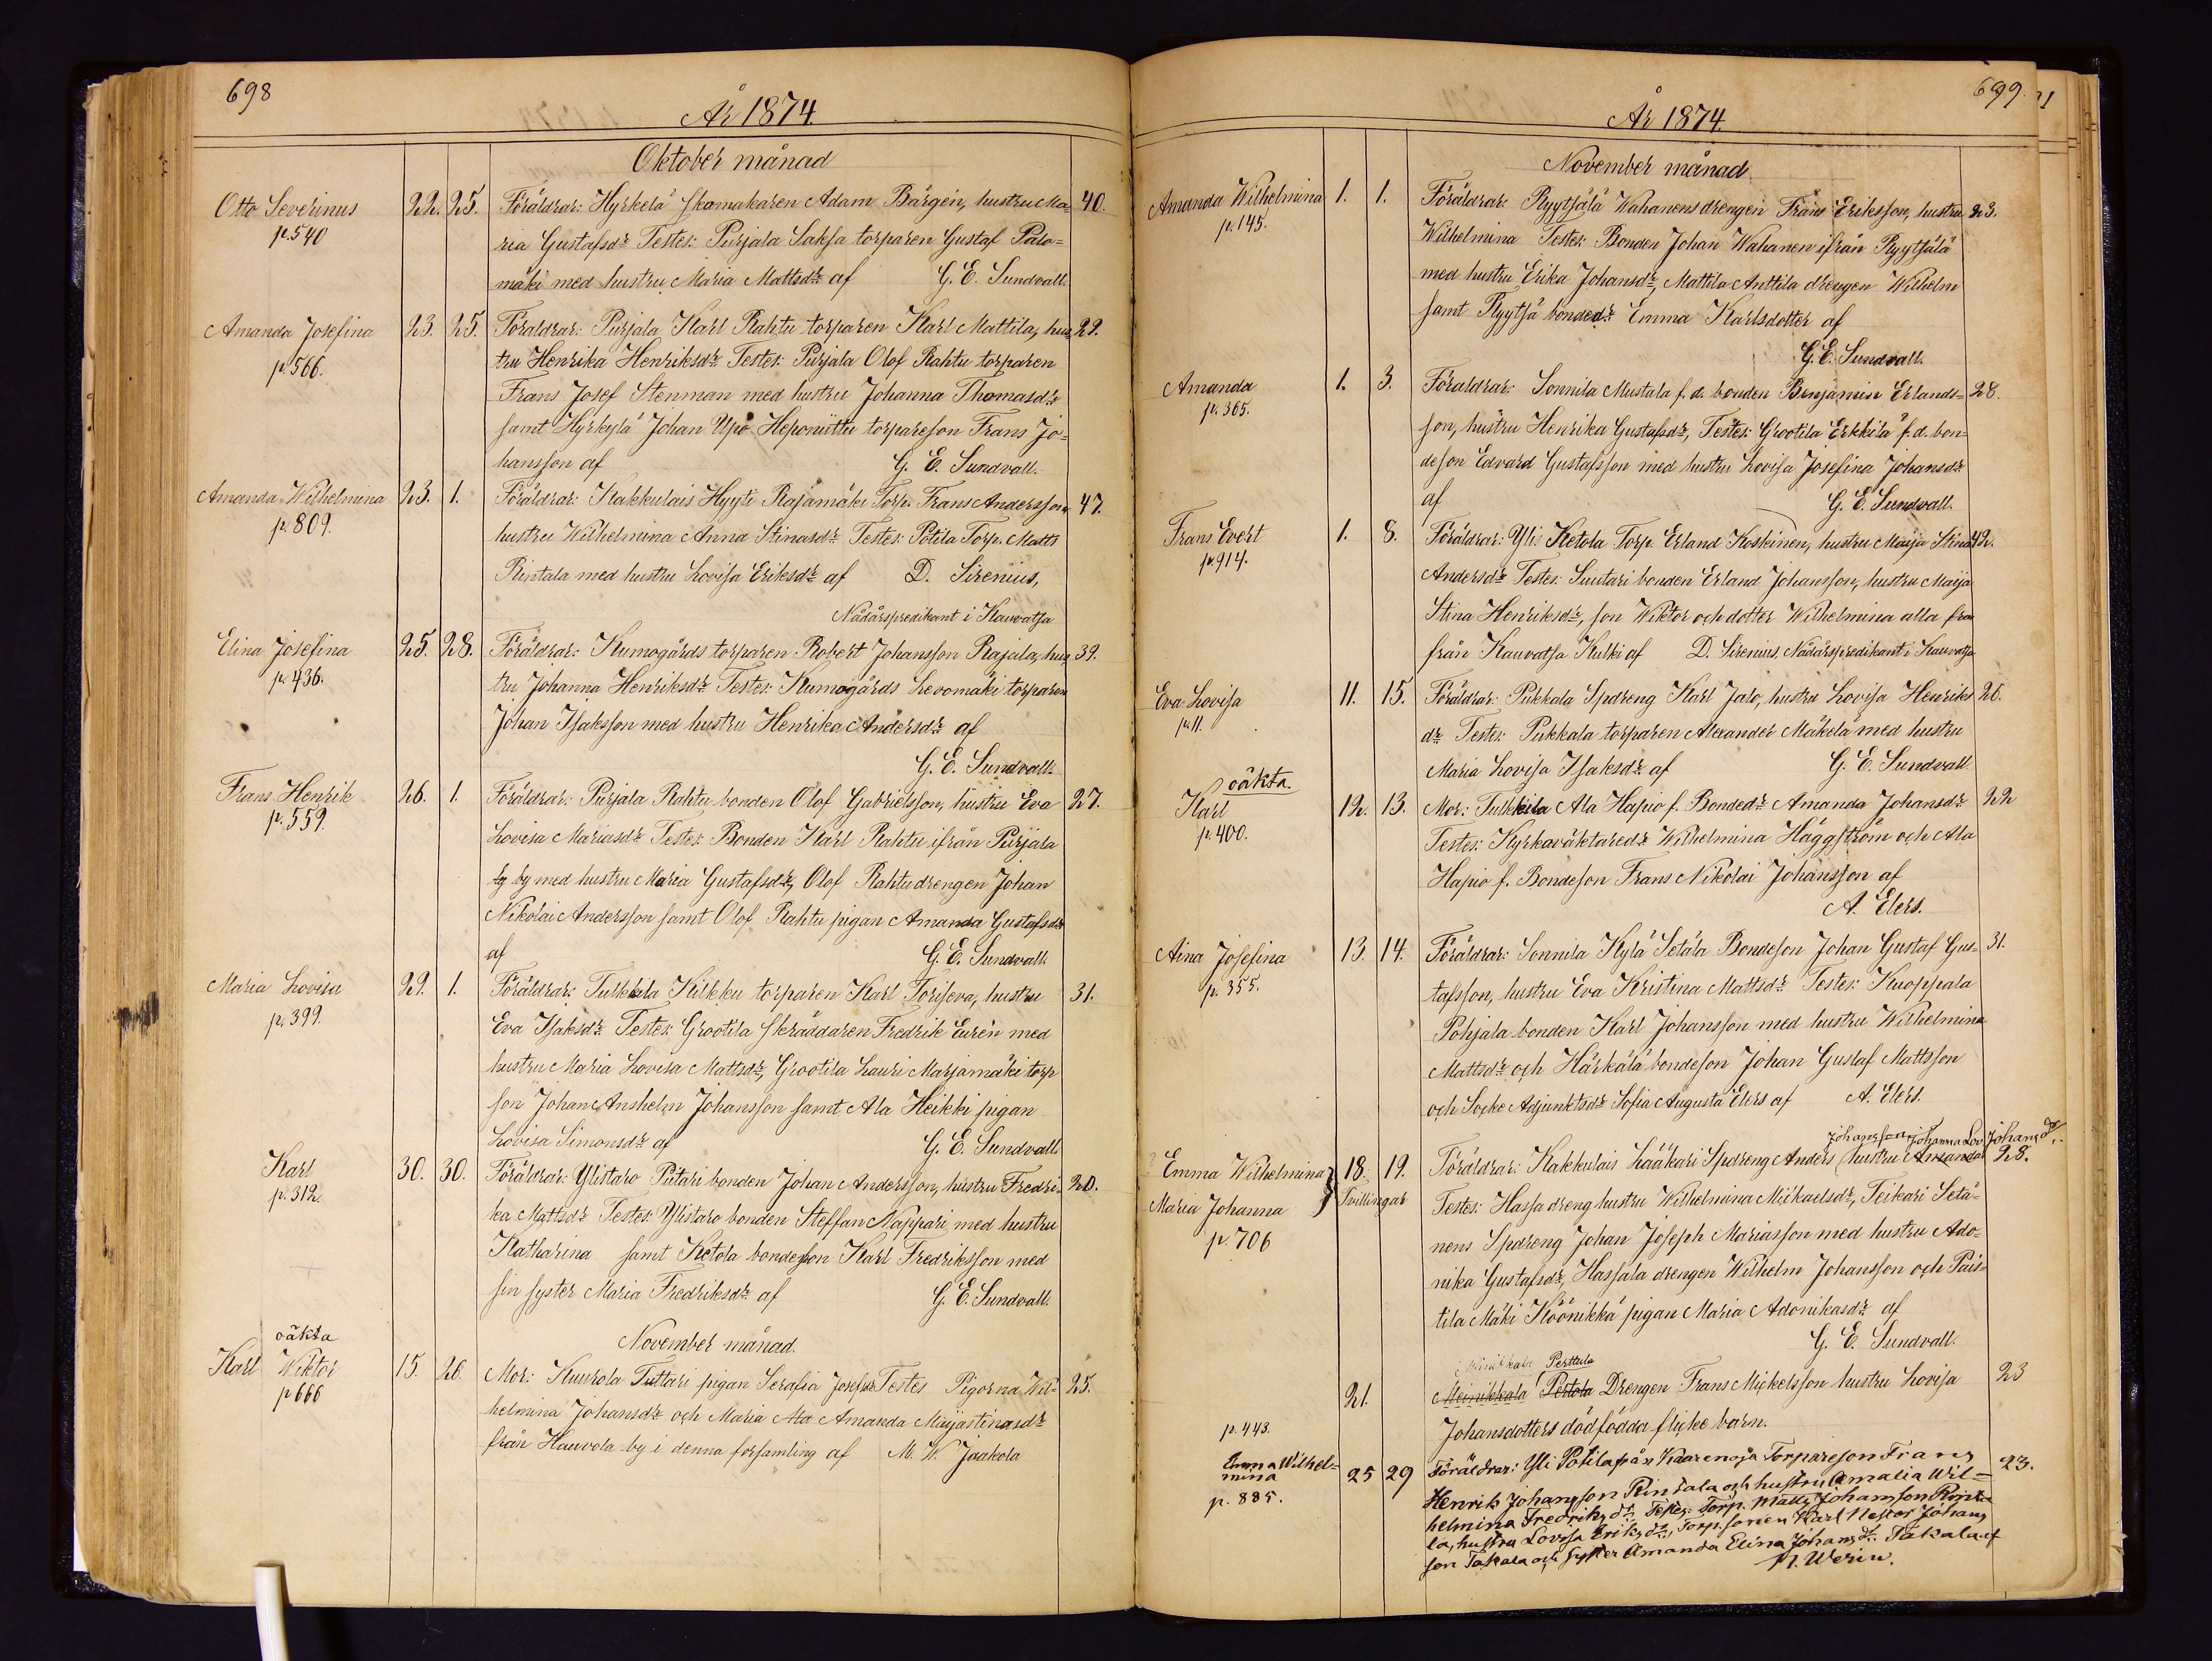 698
År 1874
Oktober månad
Otto Severinus 22. 25. Föräldrar: Hyrkelä skomakaren Adam Bärgén, hustru Ma= 40.
p. 540 ria Gustafsdr Testes: Purjala Saksa torparen Gustaf Palo=
mäki med hustru Maria Mattsdr af G. E. Sundvall.
Amanda Josefina 23. 25. Föräldrar: Purjala Karl Rahtu torparen Karl Mattila, hus= 29.
p. 566. tru Henrika Henriksdr Testes: Purjala Olof Rahtu torparen
Frans Josef Stenman med hustru Johanna Thomasdr
samt Hyrkylä Johan Upo Heponiittu torpareson Frans Jo=
hansson af G. E. Sundvall.
Amanda Wilhelmina 23. 1. Föräldrar: Kakkulais Hyyti Rajamäki Torp. Frans Andersson, 47.
p. 809. hustru Wilhelmina Anna Stinasdr Testes: Potila Torp. Matts
Rintala med hustru Lovisa Eriksdr af D. Sirenius,
Nådårspredikant i Kauvatsa
Elina Josefina 25. 28. Föräldrar: Kumogårds torparen Robert Johansson Rajala, hus= 39.
p. 436. tru Johanna Henriksdr Testes: Kumogårds Levomäki torparen
Johan Isaksson med hustru Henrika Andersdr af
G. E. Sundvall.
Frans Henrik 26. 1. Föräldrar: Purjala Rahtu bonden Olof Gabrielsson, hustru Eva 27.
p. 559. Lovisa Mariasdr Testes: Bonden Karl Rahtu ifrån Purjala
by by med hustru Maria Gustafsdr, Olof Rahtu drengen Johan
Nikolai Andersson samt Olof Rahtu pigan Amanda Gustafsdr
af G. E. Sundvall.
Maria Lovisa 29. 1. Föräldrar: Tulkkila Kilkku torparen Karl Toriseva, hustru 31.
p. 399. Eva Isaksdr Testes: Grootila skräddaren Fredrik Eurén med
hustru Maria Lovisa Mattsdr, Grootila Lauri Marjamäki torp
son Johan Anshelm Johansson samt Ala Heikki pigan
Lovisa Simonsdr af G. E. Sundvall.
Karl 30. 30. Föräldrar: Ylistaro Putari bonden Johan Andersson, hustru Fredri= 20.
p. 312. ka Mattsdr Testes: Ylistaro bonden Steffan Nappari med hustru
Katharina samt Ketola bondeson Karl Fredriksson med
sin syster Maria Fredriksdr af G. E. Sundvall.
November månad.
oäkta
Karl Wiktor 15. 26. Mor: Kuurola Tuttari pigan Serafia Josefsdr Testes Pigorna Wil= 25.
p 666 helmina Johansdr och Maria Ala Amanda Maijastinasdr
från Hauvola by i denna församling af M. W. Jaakola
699.
År 1874.
November månad
Amanda Wilhelmina 1. 1. Föräldrar: Ryytsälä Wahanens drengen Frans Eriksson, hustru 23.
p. 145. Wilhelmina Testes: Bonden Johan Wahanen ifrån Ryytsälä
med hustru Erika Johansdr, Mattila Anttila drengen Wilhelm
samt Ryytsä bondedr Emma Karlsdotter af
G. E. Sundvall.
Amanda 1. 3. Föräldrar: Sonnila Mustala f. d. bonden Benjamin Erlands= 28.
p. 365. son, hustru Henrika Gustafsdr, Testes: Grootila Erkkilä f. d. bon=
deson Edvard Gustafsson med hustru Lovisa Josefina Johansdr
af G. E. Sundvall.
Frans Evert 1. 8. Föräldrar: Yli: Ketola Torp. Erland Koskinen, hustru Maija Stina 42.
p. 914. Andersdr Testes: Suutari bonden Erland Johansson, hustru Maija
Stina Henriksdr, son Wiktor och dotter Wilhelmina alla från
från Kauvatsa Kulki af D. Sirenius, Nådårspredikant i Kauvatsa
Eva Lovisa 11. 15. Föräldrar: Pukkala Spdreng Karl Jalo, hustru Lovisa Henriks 26.
p. 11. dr Testes: Pukkala torparen Alexander Mäkelä med hustru
Maria Lovisa Isaksdr af G. E. Sundvall
oäkta.
Karl 12. 13. Mor: Tulkkila Ala Hapio f. Bondedr Amanda Johansdr 22
p. 400. Testes: Kyrkoväktaredr Wilhelmina Häggström och Ala
Hapio f. Bondeson Frans Nikolai Johansson af
A. Elers.
Aina Josefina 13. 14. Föräldrar: Sonnila Kylä Setälä Bondeson Johan Gustaf Gus= 31.
p. 355. tafsson, hustru Eva Kristina Mattsdr Testes: Kuoppala
Pohjala bonden Karl Johansson med hustru Wilhelmina
Mattsdr och Härkälä bondeson Johan Gustaf Mattsson
och Socke Adjunktsdr Sofia Augusta Elers af A. Elers.
Johansson, Johanna Lov. Johansdr.
Emma Wilhelmina 18. 19. Föräldrar: Kakkulais Lääkäri Spdreng Anders hustru Amanda 28.
Maria Johanna Tvillingar Testes: Hassa dreng hustru Wilhelmina Mickaelsdr, Teikari Setä=
p. 706 nens Spdreng Johan Joseph Mariasson med hustru Ado=
nika Gustafsdr, Hassala drengen Wilhelm Johansson och Pais=
tila Mäki Köönikkä pigan Maria Adonikasdr af
G. E. Sundvall.
Perttula
21. Meinikkala Pertola Drengen Frans Mickelsson hustru Lovisa 23
p. 443. Johansdotters dödfödda flicke barn.
Emma Wilhel= 25 29 Föräldrar: Yli Potila på Kaarenoja Torpareson Frans 23.
mina Henrik Johansson Rintala och hustru Amalia Wil=
p. 885. helmina Fredriksdr: Testes: Torp. Matts Johansson Rinta
la, hustru Lovisa Eriksdr:, Torp. sonen Karl Nestor Johans
son Takala och Syster Amanda Elina Johansdr: Takala af